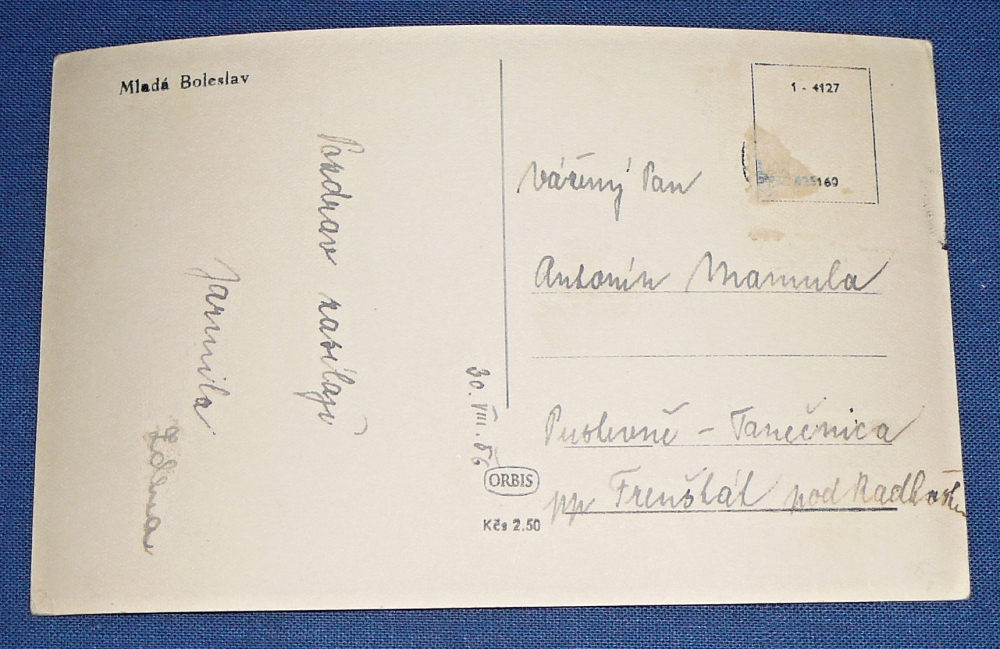 Mladá Boleslav
Pozdrav zasílají
Jarmila
Zdena
30. VIII. 56
ORBIS
Kčs 2.50
1 - 4127
Vážený Pan
Antonín Mamula
Pustevně - Tanečnica
pp Frenštát pod Radhošt